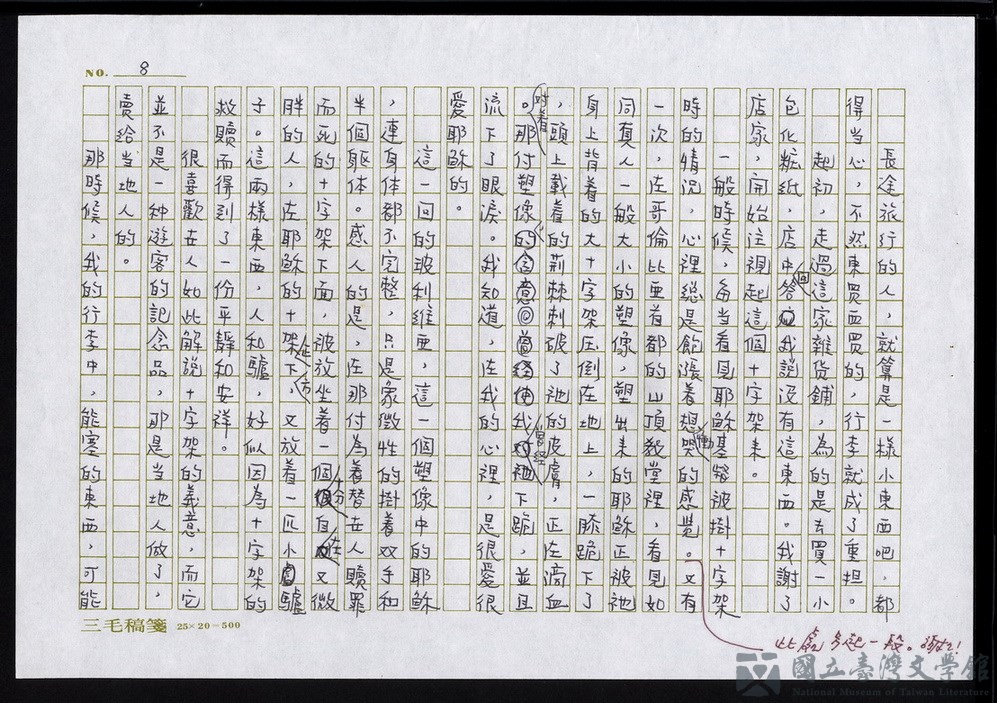 NO. 8
長途旅行的人，就算是一樣小東西吧，都
得當心，不然東買西買的，行李就成了重担。
起初，走過這家雜貨鋪，為的是去買一小
包化粧紙，店中答回我說沒有這東西。我謝了
店家，開始注視起這個十字架來。
一般時候，每當看見耶穌基督被掛十字架
時的情況，心裡總是飽漲着想慟哭的感覺。又有
一次，在哥倫比亞首都的山頂教堂裡，看見如
同真人一般大小的塑像，塑出來的耶穌正被祂
身上背着的大十字架压倒在地上，一膝跪下了
，頭上戴着的荊棘刺破了祂的皮膚，正在滴血
。對着那付塑像，我曾經下跪，並且
流下了眼淚。我知道，在我的心裡，是很愛很
愛耶穌的。
這一回的玻利維亞，這一個塑像中的耶穌
，連身体都不完整，只是象徵性的掛着双手和
半個軀体。感人的是，在那付為着替世人贖罪
而死的十字架下面，被放坐着一個十分自在又微
胖的人，在耶穌的十架左下方，又放着一匹小驢
子。這兩樣東西，人和驢，好似因為十字架的
救贖而得到了一份平靜和安祥。
很喜歡世人如此解說十字架的義意，而它
並不是一种遊客的記念品，那是当地人做了，
賣給当地人的。
那時候，我的行李中，能塞的東西，可能
三毛稿箋 25×20=500
此處另起一段。謝謝！
國立臺灣文學館
National Museum of Taiwan Literature